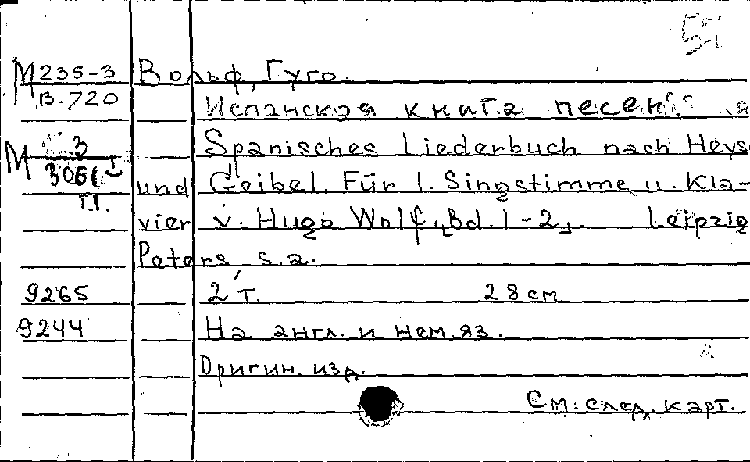 51
М 235-3 Вольф, Гуго.
В. 720 Испанская книга песен
М 3 Spanisches Liederbuch nach Heyse
306 I und Geibel. Für 1. Singstimme u. Kla-
T.1. vier v. Hugo Wolf, Bd. 1-2, Leipzig
Peters s.a.
9265 2 т. 28 см
9244 На англ. и нем. яз.
Оригин. изд.
См. след. карт.